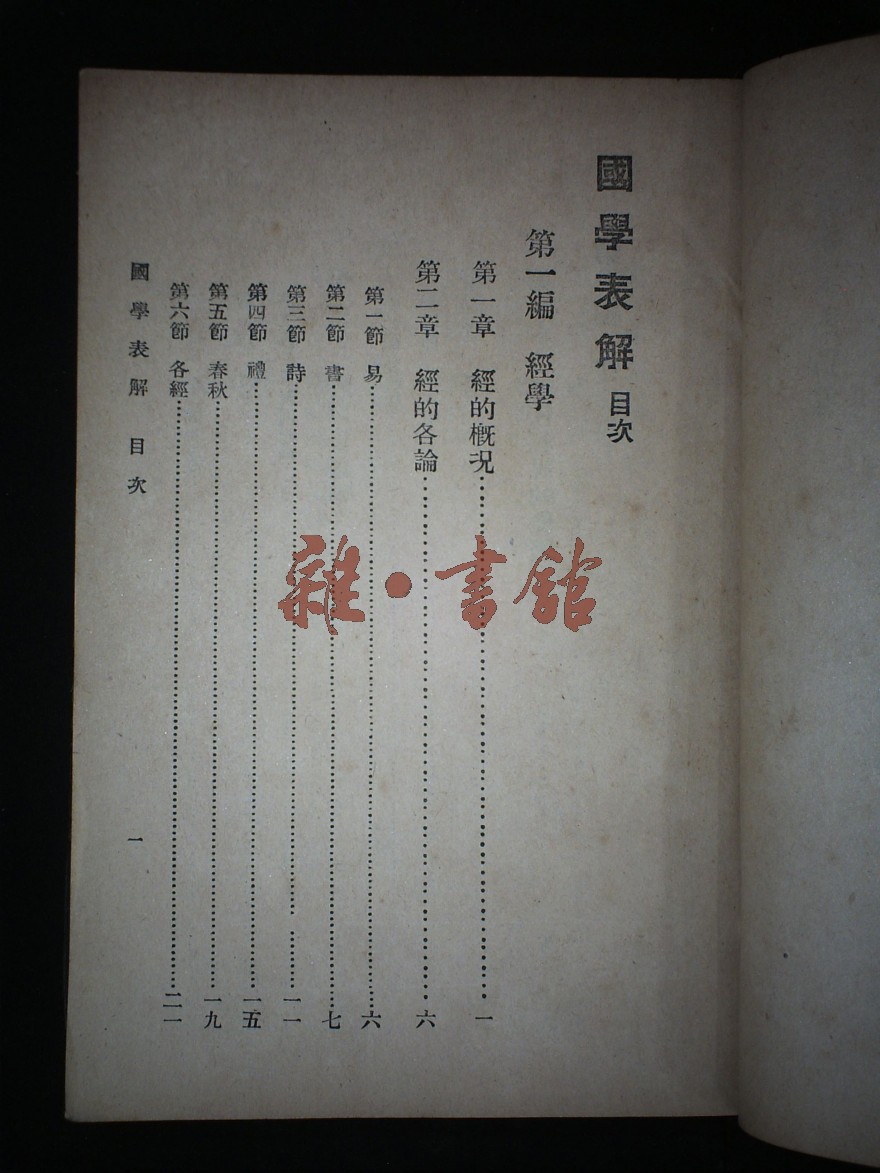 國學表解 目次
第一編 經學
第一章 經的概況……一
第二章 經的各論……六
第一節 易……六
第二節 書……七
第三節 詩……一一
第四節 禮……一五
第五節 春秋……一九
第六節 各經……二一
國學表解 目次 一
雜·書館